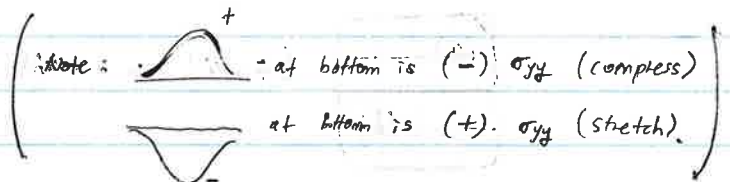 +
Note : at bottom is (-) σyy (compress)
at bottom is (+). σyy (stretch).
-